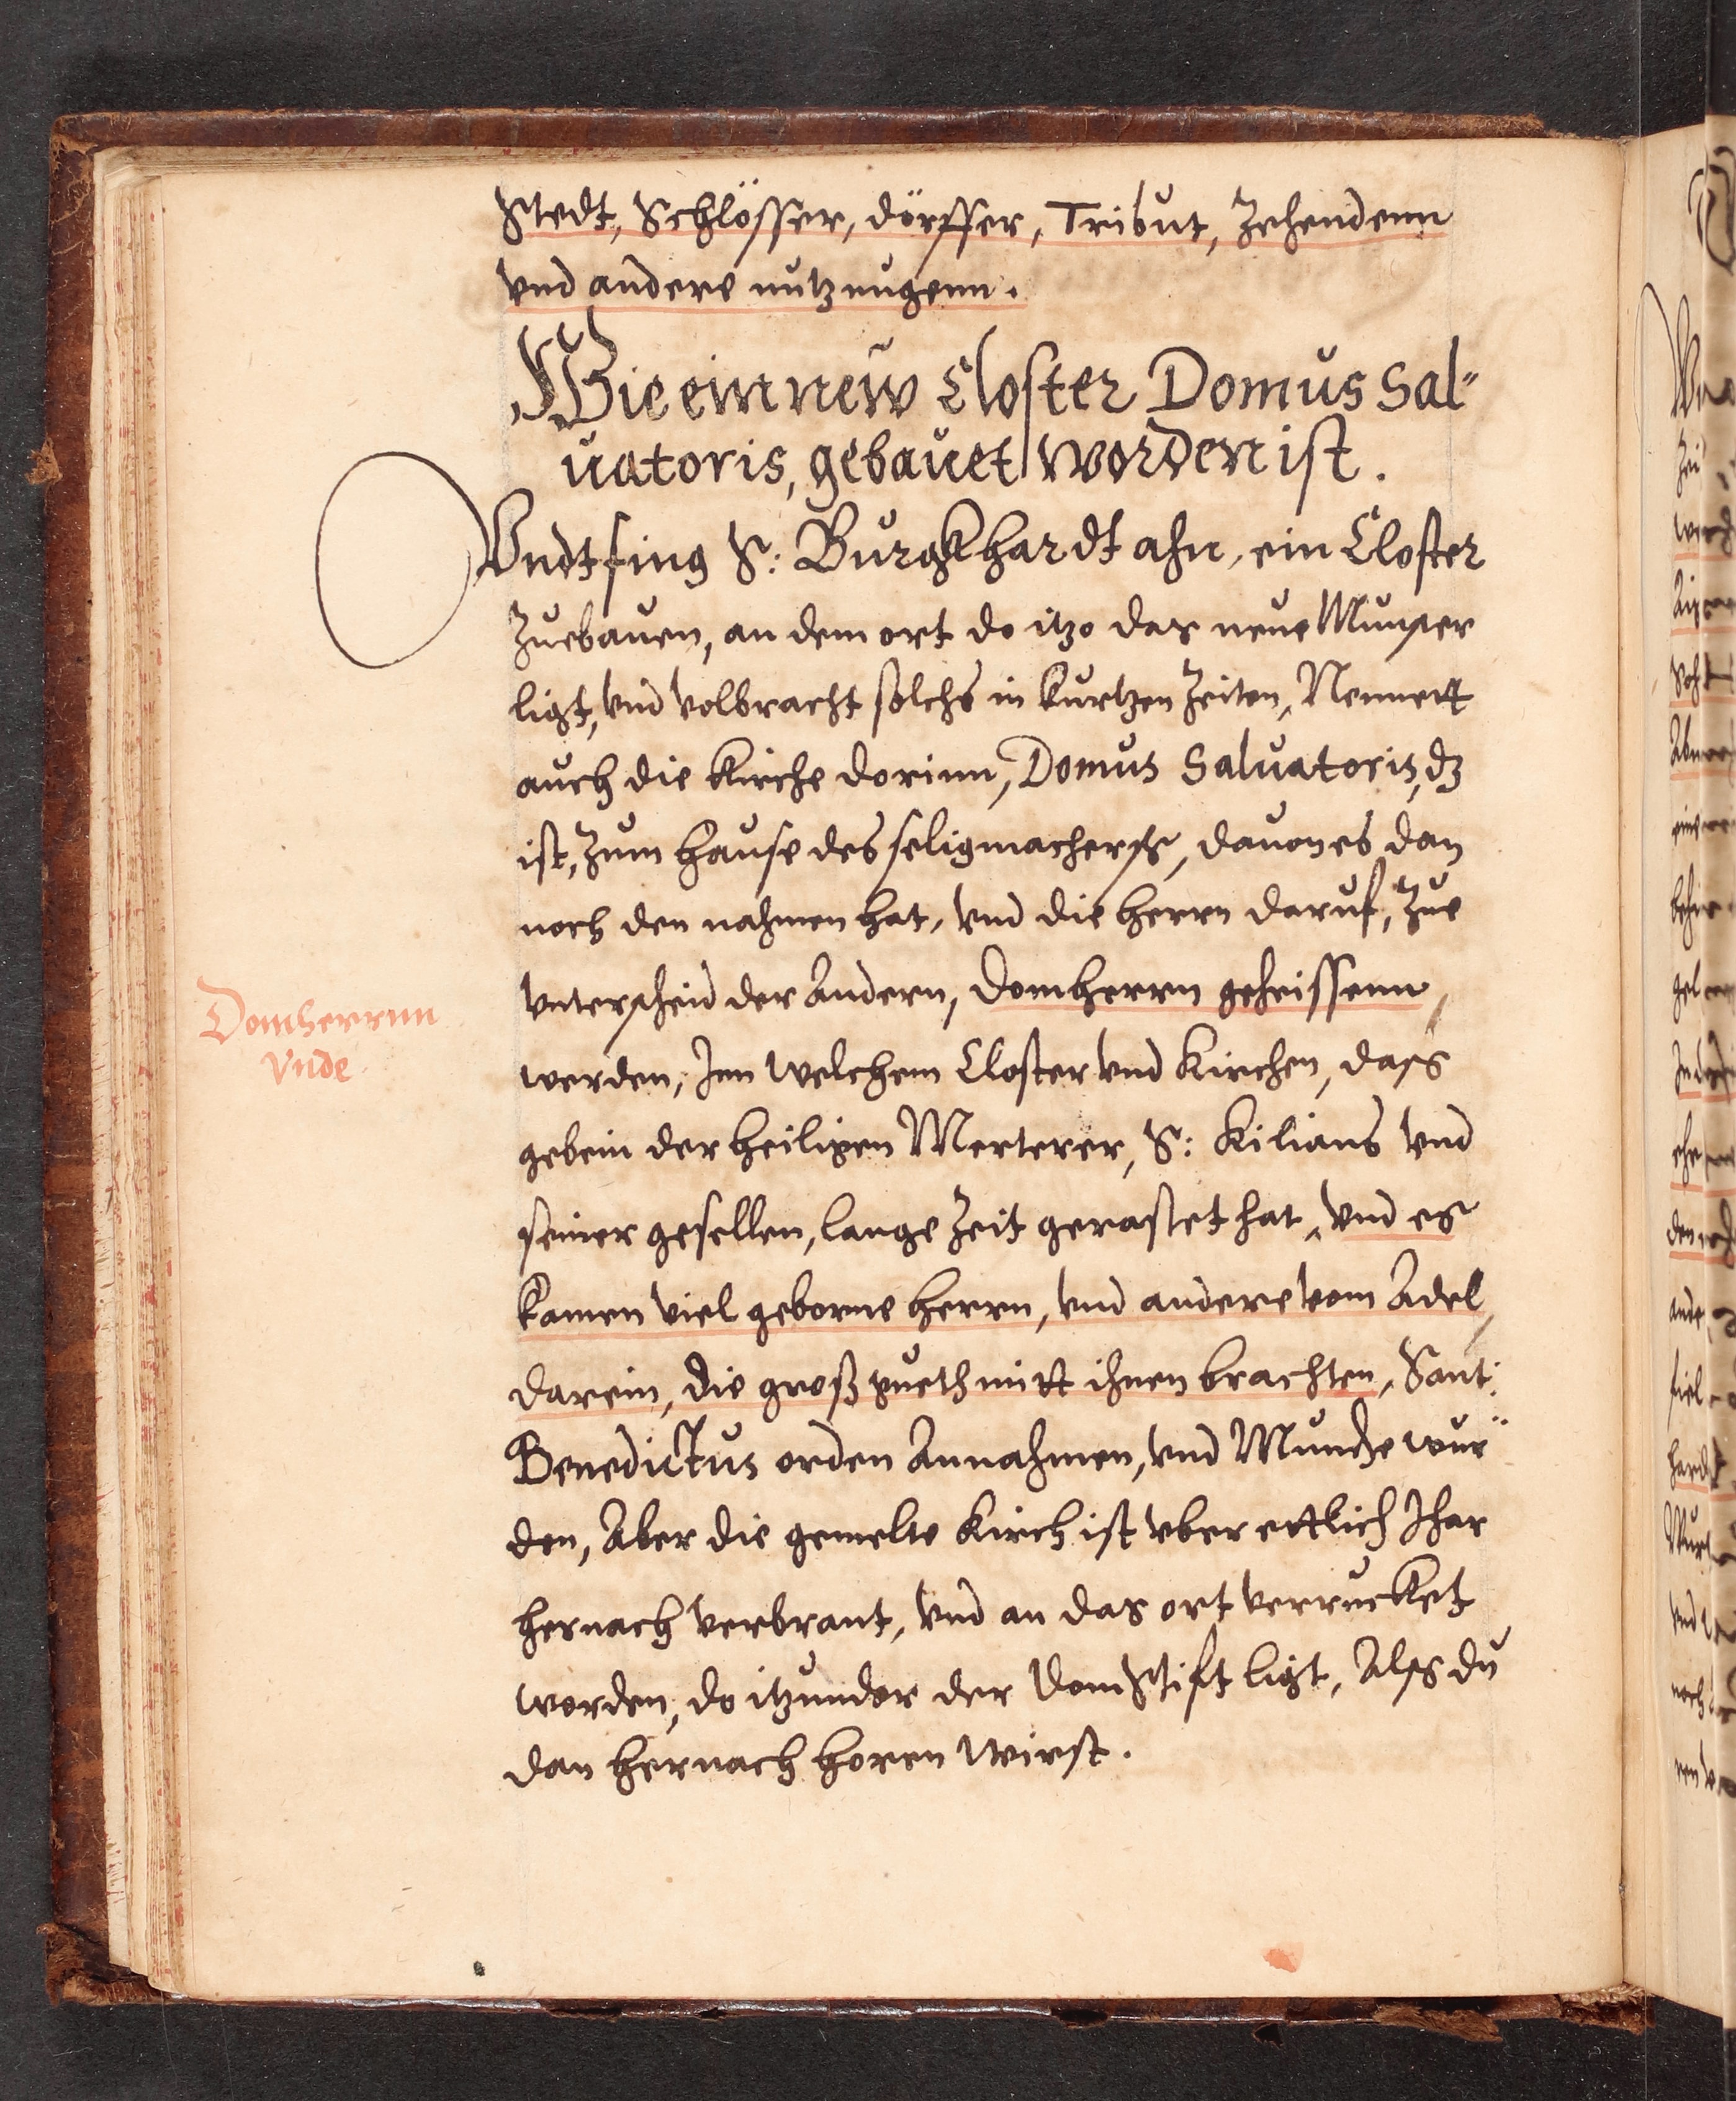 Stedt, Schlösser, dörffer, Tribut, Zehendenn
vnd andere nutzungenn.
Wie ein new Closter Domus Sal-
uatoris, gebauet worden ist.
Vndt fing S: Burgkhardt ahn, ein Closter
Zuebauen, an dem ort do itzo das neue Munster
ligt, vnd volbracht solchs in kurtzen Zeiten, Nennett
auch die Kirche dorinn, Domus Saluatoris, dz
ist, Zum Hause des seligmacherss, dauon es dan
noch den nahmen hat, vnd die herrn daruf, Zue
vnterscheid der Andern, Domherrn geheissenn,
Domherrnn
Vnde
werden, Inn welchem Closter vnd Kirchen, dass
gebein der heiligen Merterer, S: Kilians vnd
seiner gesellen, lange Zeit gerastet hat, vnd es
kamen viel geborne herrn, vnd andere vom Adel,
darein, die groß gueth mitt ihnen brachten, Sant:
Benedictus orden Annahmen, vnd Munche wur-
den, Aber die gemelte Kirch ist vber ettlich Ihar
hernach verbrant, vnd an das ort verrucket
worden, do itzundor der Domstift ligt, Alss du
dan hernach horen wirst.